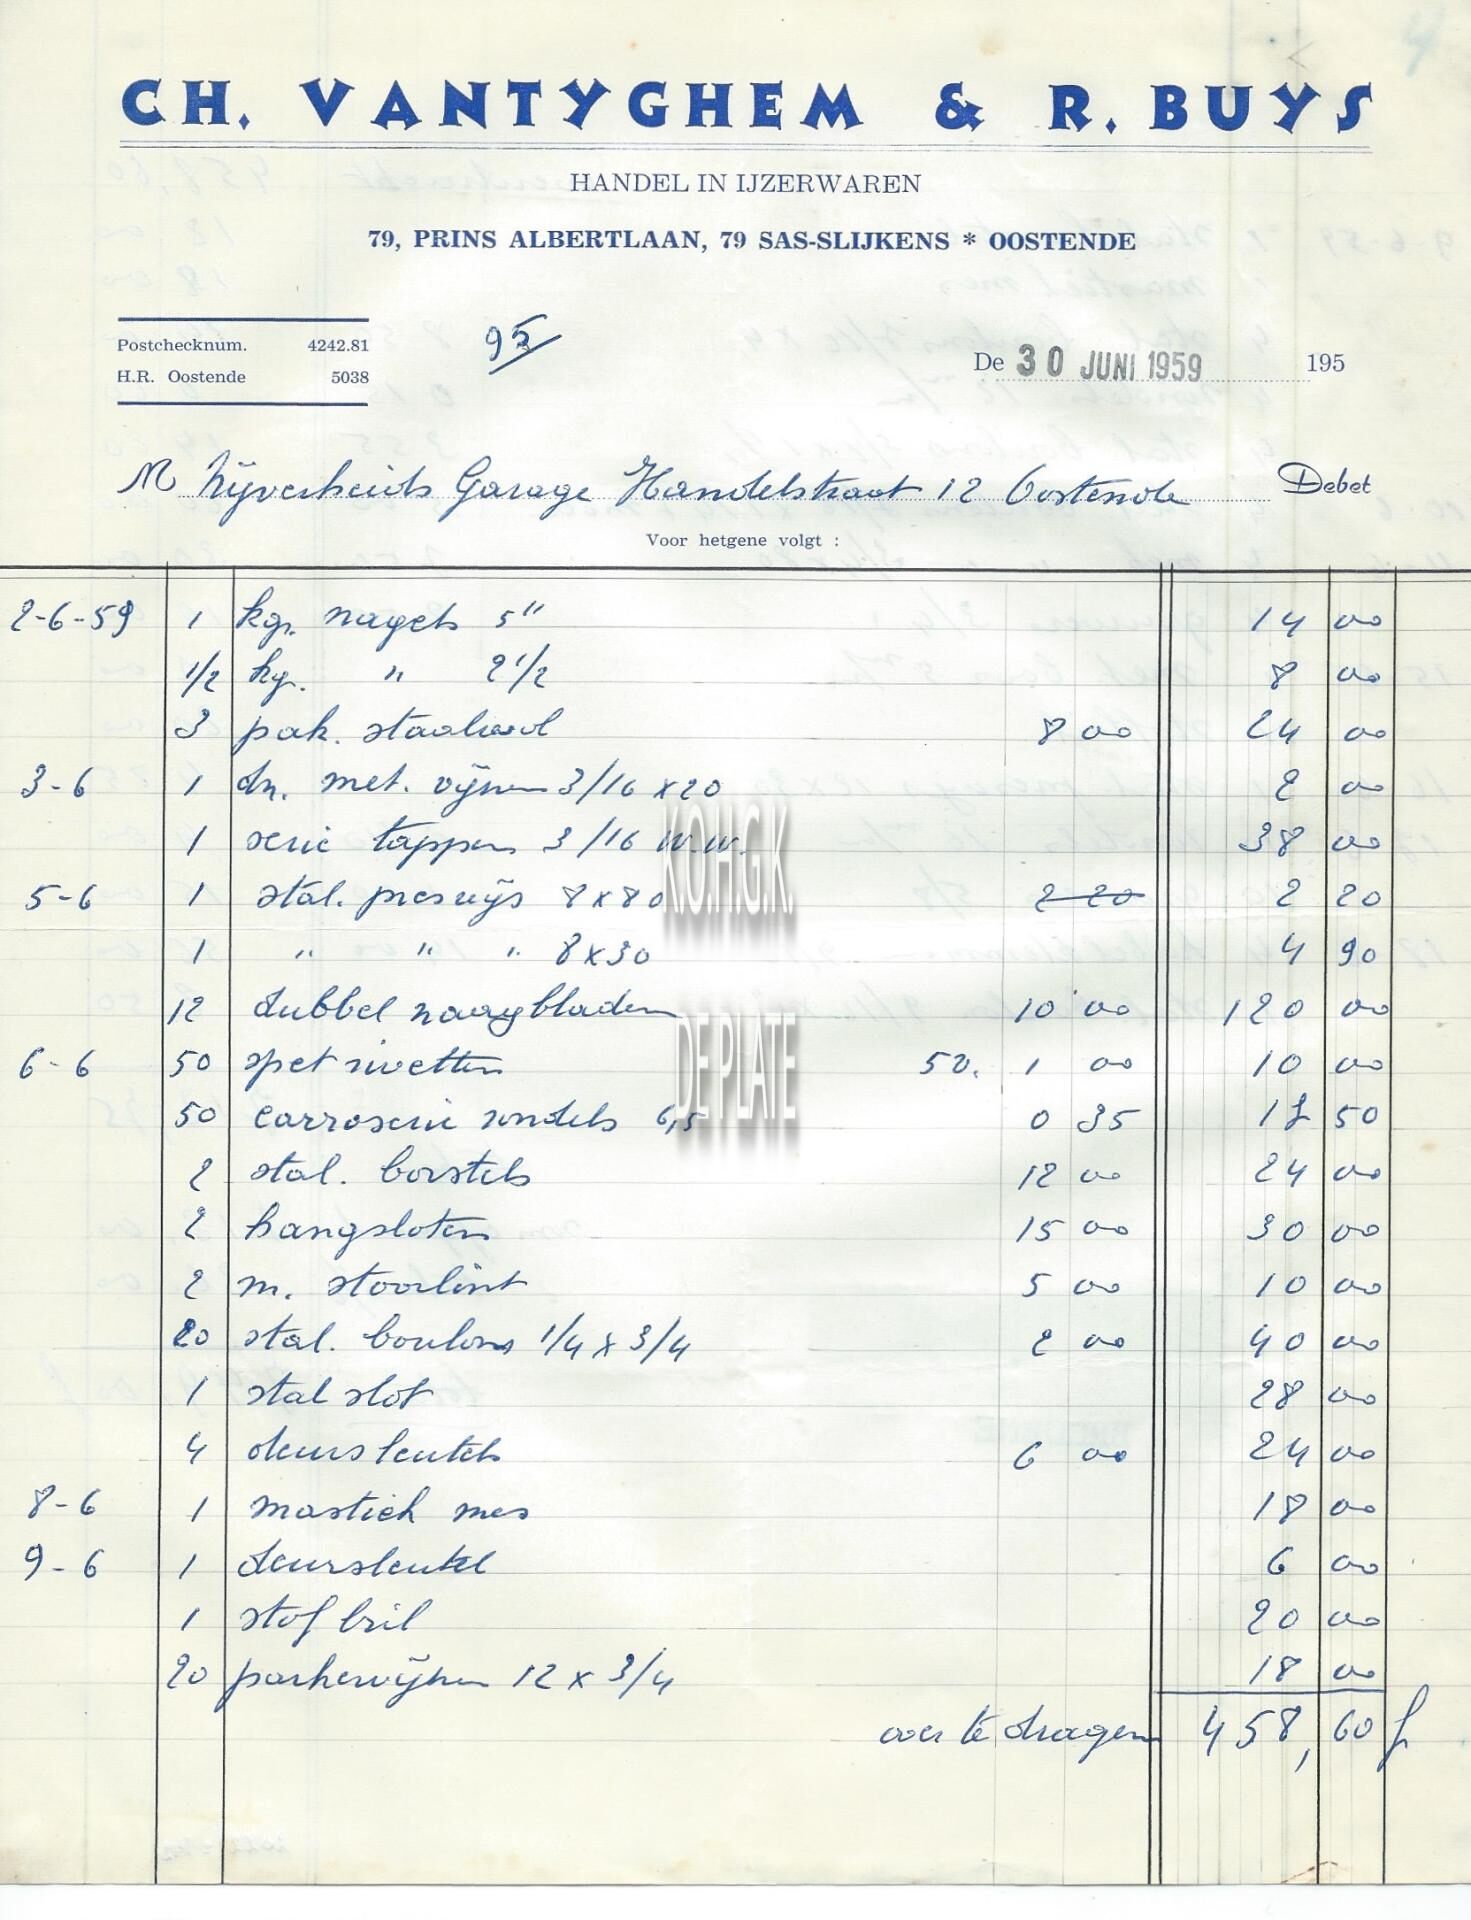 CH. VANTYGHEM & R. BUYS
HANDEL IN IJZERWAREN
79, PRINS ALBERTLAAN, 79 SAS-SLIJKENS * OOSTENDE
Postchecknum. 4242.81
H.R. Oostende 5038
95
De 30 JUNI 1959 195
M Nijverheids Garage Handelstraat 12 Oostende Debet
Voor hetgene volgt :
2-6-59 1 kg. nagels 5" 14 00
1/2 kg. " 2 1/2 8 00
3 pak. staalwol 8 00 24 00
3-6 1 dn. met. vijzen 3/16 x 20 2 00
1 serie tappen 3/16 W.W. 38 00
5-6 1 stal. 8 x 80 2 20 2 20
1 " " " 8 x 30 4 90
12 dubbel zaagbladen 10 00 120 00
6-6 50 rivetten 50. 1 00 10 00
50 carroserie rondels 6,5 0 35 17 50
2 stal. borstels 12 00 24 00
2 hangsloten 15 00 30 00
2 m. stoorlint 5 00 10 00
20 stal. boulons 1/4 x 3/4 2 00 40 00
1 stal slot 28 00
4 deursleutels 6 00 24 00
8-6 1 mastiek mes 18 00
9-6 1 deursleutel 6 00
1 stofbril 20 00
20 parkervijzen 12 x 3/4 18 00
over te dragen 458,60 f
K.O.H.G.K.
DE PLATE